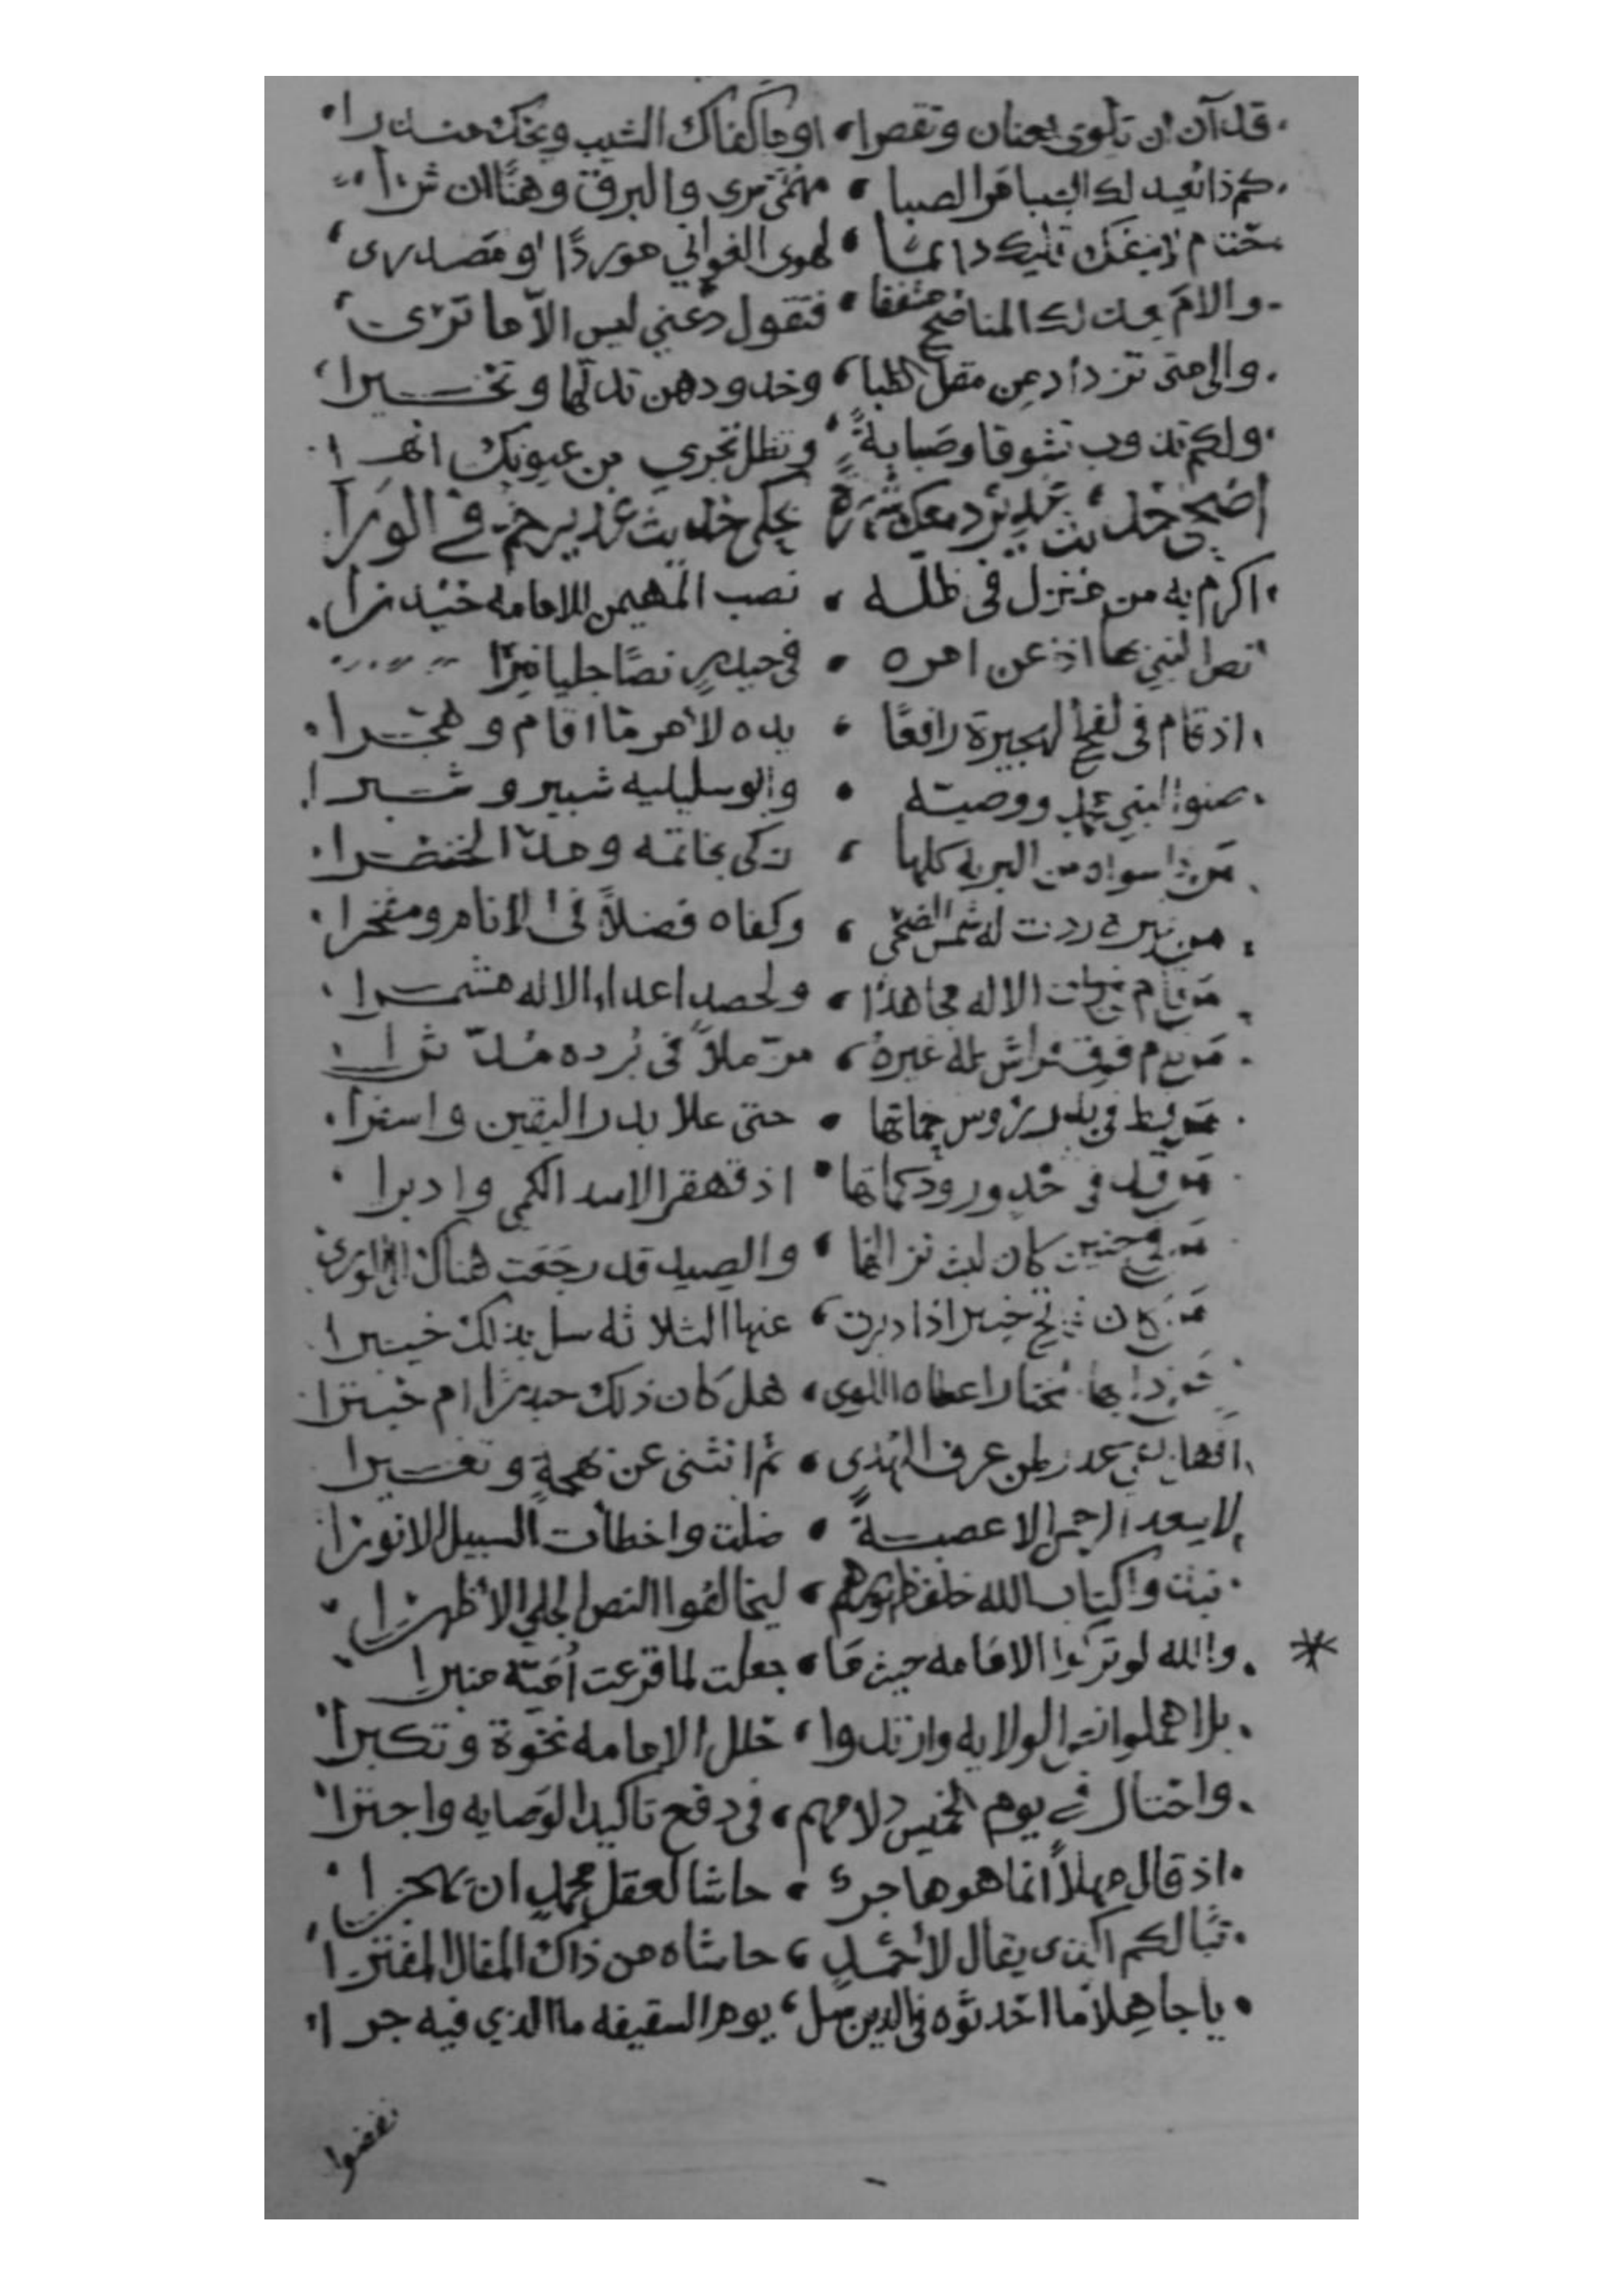 قد آن ان تلوي العنان وتقصرا ، اوما كفاك الشيب ويحك منذرا
كم ذا يعيد لك الصبا مر الصبا ، مهمى سرى والبرق وهنًا ان شرا
حتام لا ينفك قلبك دايمًا ، لهوى الغواني موردًا او مصدرى
والام يمحك المناضح مشفقا ، فتقول دعني ليس الّا ما ترى
والى متى تزداد من مقل الظبا ، وخدودهن تدلّها وتحسيرا
ولكم تذوب تشوقا وصبابةً ، وتظل تجري من عيونك انهرا
اضحى حديث غدير دمعك شهرة يحكي حديث غدير خم في الورا
اكرم به من منزل في ظله ، نصب المهيمن للامامه حيدرا
نص النبي بها اذ عن امره ، في حيدر نصًا جليا نيرا
اذ قام في لفح الهجيرة رافعًا ، يده لأمر ما اقام وهجّرا
صنو النبي محمد ووصيّه ، وابو سليليه شبير وشبرا
من ذا سواه من البريه كلها ، زكى بخاتمه ومدّ الخنصرا
من غيره ردت له شمس الضحى ، وكفاه فضلاً في الأنام ومفخرا
من قام في ذات الاله مجاهدًا ، ولحصد اعداء الاله مشمرا
من نام فوق فراش طه غيره ، مزّملاً في بُرده مُدّثرا
من قط في بدر رؤوس حماتها ، حتى علا بدر اليقين واسفرا
من قد في أحد ورود كماتها ، اذ قهقر الاسد الكمي وادبرا
من في حنين كان ليث نزالها ، والصيد قد رجعت هناك الى الورى
من كان فاتح خيبر اذ ادبرت ، عنها الثلاثه سل بذلك خيبرا
من ذا بها المختار اعطاه اللوى ، هل كان ذلك حيدرًا ام خيبرا
افهل بقي عذر لمن عرف الهدى ، ثم انثنى عن نهجهِ وتغيرا
لا يبعد الرحمن الا عصبةً ، ضلت واخطأت السبيل الانورا
نبذوا كتاب الله خلف ظهورهم ، ليخالفوا النص الجلي الأظهرا
والله لو تركوا الامامه حيث ما ، جعلت لما قرعت أميّة منبرا
بل اهملوا الولايه وارتدوا ، حلل الامامه نخوة وتكبرا
واختال في يوم الخميس دلامهم ، في دفع تاكيد الوصايه واجترا
اذ قال مهلاً انما هو هاجر ، حاشا لعقل محمدٍ ان يهجرا
تبا لكم اكذى يقال لأحمدٍ ، حاشاه من ذاك المقال المفترا
يا جاهلاً ما احدثوه في الدين سل ، يوم السقيفه ما الذي فيه جرا
نفضوا